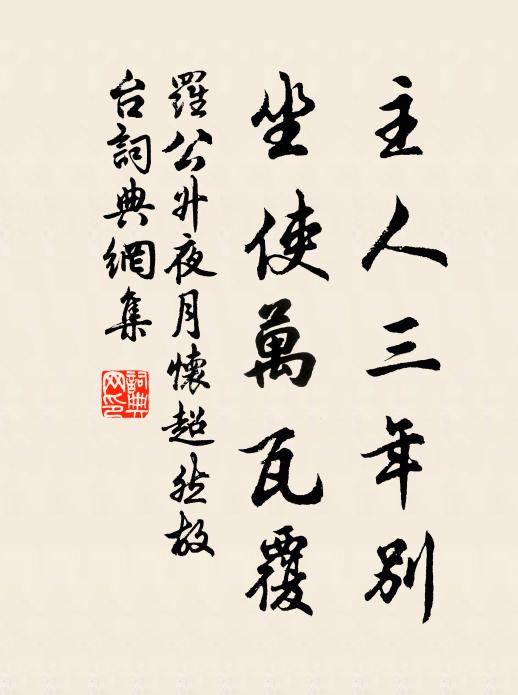 主人三年別
坐使萬瓦覆
羅公升夜月懷超然故
台詞典網集
詞典
网印